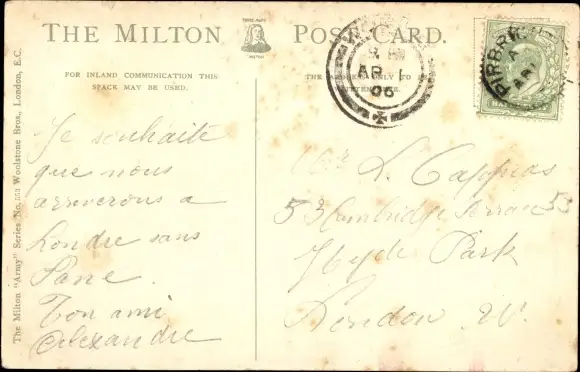 THE MILTON POST CARD.
FOR INLAND COMMUNICATION THIS
SPACE MAY BE USED.
THE ADDRESS ONLY TO
AP 1
06
PIRBRIGHT
A
AP 1
The Milton "Army" Series No. 553 Woolstone Bros., London, E.C.
Je souhaite
que nous
arriverons a
Londre sans
Pane.
Ton ami
Alexandre
L. Cappus
53 Cambridge Terrace 53
Hyde Park
London W.